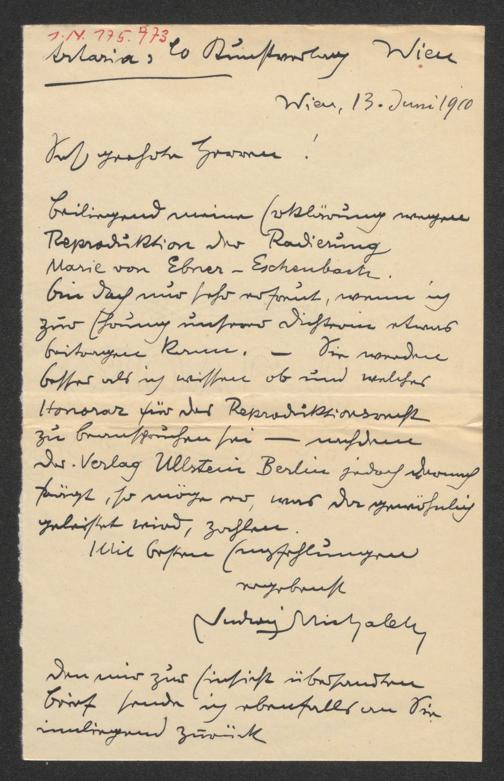 J.N. 175.973
Artaria & Co Kunstverlag Wien
Wien, 13. Juni 1910
Sehr geehrte Herren!
beiliegend meine Erklärung wegen
Reproduktion der Radierung
Marie von Ebner-Eschenbach.
bin doch nur sehr erfreut, wenn ich
zur Ehrung unserer Dichterin etwas
beitragen kann. — Sie werden
besser als ich wissen ob und welches
Honorar für das Reproduktionsrecht
zu beanspruchen sei — nachdem
der Verlag Ullstein Berlin jedoch darnach
frägt, so möge er, was da gewöhnlich
geleistet wird, zahlen.
Mit besten Empfehlungen
ergebenst
Ludwig Michalek
Den mir zur Einsicht übersandten
Brief sende ich ebenfalls an Sie
inliegend zurück